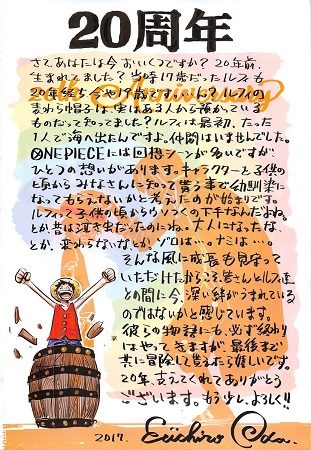 20周年
さて、あなたは今おいくつですか？20年前、
生まれてました？当時17歳だったルフィも
20年経ち今や19歳です…ん？ルフィの
麦わら帽子は実はある人から預かっている
ものだって知ってました？ルフィは最初、たった
1人で海へ出たんですよ。仲間はいませんでした。
ONE PIECEには回想シーンが多いですが、
ひとつの想いがあります。キャラクターと子供の
頃からみなさんに知って貰う事で幼馴染に
なってもらえないかと考えたのが始まりです。
ルフィって子供の頃からウソつくの下手なんだよね。
とか昔は泣き虫だったのにね、大人になったな、
とか、変わらないなとか、ゾロは…。ナミは…。
そんな風に成長も見守って
いただけたからこそ皆さんとルフィ達
との間に今、深い絆がうまれている
のではないかと感じています。
彼らの物語にも、必ず終わり
はやってきますが、最後まで
共に冒険して貰えたら嬉しいです。
20年、支えてくれてありがとう
ございます。もう少し、よろしく!!
2017. Eiichiro Oda.